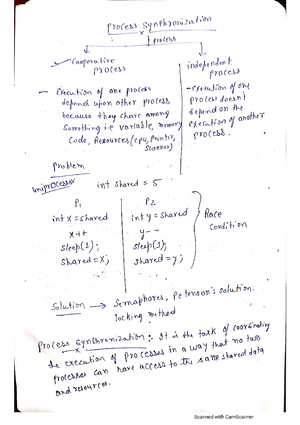 Process Synchronization
process
Cooperative process
- Execution of one process depend upon other process because they share among Something i.e variable, memory Code, Resources (CPU, Printer, scanner)
independent process
- execution of one process doesn't depend on the execution of another process.
Problem
uniprocessor int shared = 5
P1
int x = shared
x++
sleep(1);
shared = x;
P2
int y = shared
y--
sleep(1);
shared = y;
Race Condition
Solution → Semaphores, Peterson's solution.
locking method
Process Synchronization :- It is the task of coordinating
the execution of processes in a way that no two
processes can have access to the same shared data
and resources.
Scanned with CamScanner